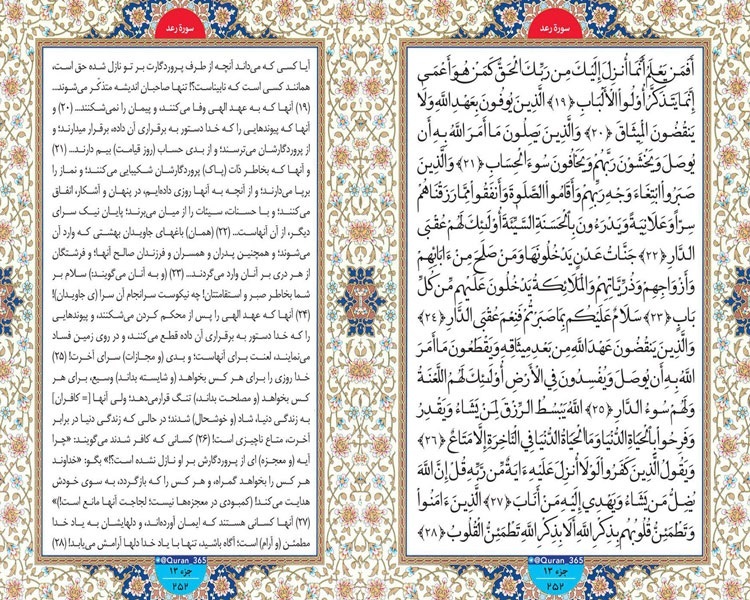 سورة رعد
أَفَمَن يَعْلَمُ أَنَّمَا أُنزِلَ إِلَيْكَ مِن رَبِّكَ الْحَقُّ كَمَنْ هُوَ أَعْمَى
إِنَّمَا يَتَذَكَّرُ أُولُوا الْأَلْبَابِ ﴿١٩﴾ الَّذِينَ يُوفُونَ بِعَهْدِ اللَّهِ وَلَا
يَنقُضُونَ الْمِيثَاقَ ﴿٢٠﴾ وَالَّذِينَ يَصِلُونَ مَا أَمَرَ اللَّهُ بِهِ أَن
يُوصَلَ وَيَخْشَوْنَ رَبَّهُمْ وَيَخَافُونَ سُوءَ الْحِسَابِ ﴿٢١﴾ وَالَّذِينَ
صَبَرُوا ابْتِغَاءَ وَجْهِ رَبِّهِمْ وَأَقَامُوا الصَّلَوةَ وَأَنفَقُوا مِمَّا رَزَقْنَاهُمْ
سِرًّا وَعَلَانِيَةً وَيَدْرَءُونَ بِالْحَسَنَةِ السَّيِّئَةَ أُولَئِكَ لَهُمْ عُقْبَى
الدَّارِ ﴿٢٢﴾ جَنَّاتُ عَدْنٍ يَدْخُلُونَهَا وَمَن صَلَحَ مِنْ ءَابَائِهِمْ
وَأَزْوَاجِهِمْ وَذُرِّيَّاتِهِمْ وَالْمَلَائِكَةُ يَدْخُلُونَ عَلَيْهِم مِّن كُلِّ
بَابٍ ﴿٢٣﴾ سَلَامٌ عَلَيْكُم بِمَا صَبَرْتُمْ فَنِعْمَ عُقْبَى الدَّارِ ﴿٢٤﴾
وَالَّذِينَ يَنقُضُونَ عَهْدَ اللَّهِ مِن بَعْدِ مِيثَاقِهِ وَيَقْطَعُونَ مَا أَمَرَ
اللَّهُ بِهِ أَن يُوصَلَ وَيُفْسِدُونَ فِي الْأَرْضِ أُولَئِكَ لَهُمُ اللَّعْنَةُ
وَلَهُمْ سُوءُ الدَّارِ ﴿٢٥﴾ اللَّهُ يَبْسُطُ الرِّزْقَ لِمَن يَشَاءُ وَيَقْدِرُ
وَفَرِحُوا بِالْحَيَاةِ الدُّنْيَا وَمَا الْحَيَاةُ الدُّنْيَا فِي الْآخِرَةِ إِلَّا مَتَاعٌ ﴿٢٦﴾
وَيَقُولُ الَّذِينَ كَفَرُوا لَوْلَا أُنزِلَ عَلَيْهِ ءَايَةٌ مِّن رَّبِّهِ قُلْ إِنَّ اللَّهَ
يُضِلُّ مَن يَشَاءُ وَيَهْدِي إِلَيْهِ مَنْ أَنَابَ ﴿٢٧﴾ الَّذِينَ ءَامَنُوا
وَتَطْمَئِنُّ قُلُوبُهُم بِذِكْرِ اللَّهِ أَلَا بِذِكْرِ اللَّهِ تَطْمَئِنُّ الْقُلُوبُ ﴿٢٨﴾
@Quran_365
جزء ١٣
٢٥٢
سورة رعد
آیا کسی که می‌داند آنچه از طرف پروردگارت بر تو نازل شده حق است،
همانند کسی است که نابیناست؟! تنها صاحبان اندیشه متذکّر می‌شوند...
(۱۹) آنها که به عهد الهی وفا می‌کنند، و پیمان را نمی‌شکنند... (۲۰) و
آنها که پیوندهایی را که خدا دستور به برقراری آن داده، برقرار میدارند؛ و
از پروردگارشان می‌ترسند؛ و از بدی حساب (روز قیامت) بیم دارند... (۲۱)
و آنها که بخاطر ذات (پاک) پروردگارشان شکیبایی می‌کنند؛ و نماز را
برپا می‌دارند؛ و از آنچه به آنها روزی داده‌ایم، در پنهان و آشکار، انفاق
می‌کنند؛ و با حسنات، سیئات را از میان می‌برند؛ پایان نیک سرای
دیگر، از آن آنهاست... (۲۲) (همان) باغهای جاویدان بهشتی که وارد آن
می‌شوند؛ و همچنین پدران و همسران و فرزندان صالح آنها؛ و فرشتگان
از هر دری بر آنان وارد می‌گردند... (۲۳) (و به آنان می‌گویند:) سلام بر
شما بخاطر صبر و استقامتتان! چه نیکوست سرانجام آن سرا(ی جاویدان)!
(۲۴) آنها که عهد الهی را پس از محکم کردن می‌شکنند، و پیوندهایی
را که خدا دستور به برقراری آن داده قطع می‌کنند، و در روی زمین فساد
می‌نمایند، لعنت برای آنهاست؛ و بدی (و مجازات) سرای آخرت! (۲۵)
خدا روزی را برای هر کس بخواهد (و شایسته بداند) وسیع، برای هر
کس بخواهد (و مصلحت بداند)، تنگ قرارمی‌دهد؛ ولی آنها [= کافران]
به زندگی دنیا، شاد (و خوشحال) شدند؛ در حالی که زندگی دنیا در برابر
آخرت، متاع ناچیزی است! (۲۶) کسانی که کافر شدند می‌گویند: «چرا
آیه (و معجزه) ای از پروردگارش بر او نازل نشده است؟!» بگو: «خداوند
هر کس را بخواهد گمراه، و هر کس را که بازگردد، به سوی خودش
هدایت می‌کند! (کمبودی در معجزه‌ها نیست؛ لجاجت آنها مانع است!)»
(۲۷) آنها کسانی هستند که ایمان آورده‌اند، و دلهایشان به یاد خدا
مطمئن (و آرام) است؛ آگاه باشید، تنها با یاد خدا دلها آرامش می‌یابد! (۲۸)
@Quran_365
جزء ۱۳
۲۵۲